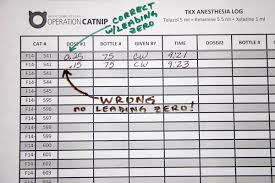 OPERATION CATNIP
CORRECT
W/LEADING
ZERO
TKX ANESTHESIA LOG
Telazol 5 ml • Ketamine 5.5 ml • Xylazine 1 ml
CAT # DOSE #1 BOTTLE # GIVEN BY TIME CAT # DOSE BOTTLE # GIVEN BY TIME
F14- 541 0.25 75 CW 9:21 F14-
F14- 542 .15 75 CW 9:23 F14-
F14- 543 F14-
F14- F14-
F14- WRONG F14-
F14- NO LEADING ZERO! F14-
F14- F14-
F14- F14-